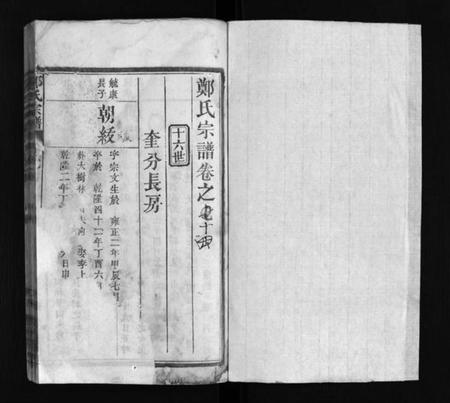 鄭氏宗譜卷之
十六世
奎分長房
毓康長子
朝綬
字宗文生於 雍正二年甲辰七月
卒於 乾隆四十二年丁酉六月
葬大樹林 娶李上
乾隆二年丁 日申
鄭氏宗譜